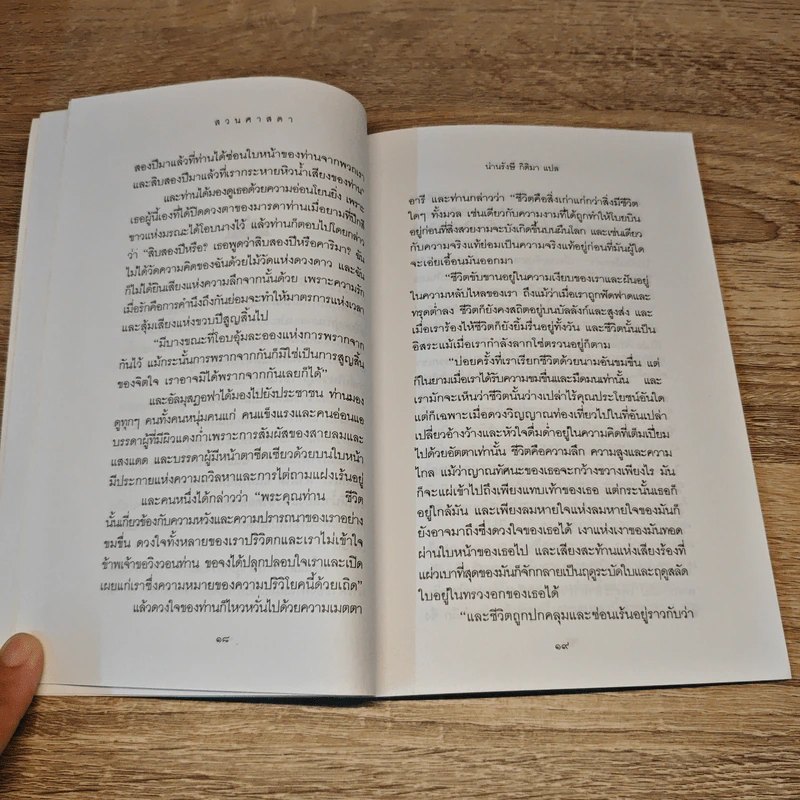 สวนศาสดา
สองปีมาแล้วที่ท่านได้ซ่อนใบหน้าของท่านจากพวกเรา
และสิบสองปีมาแล้วที่เรากระหายหิวน้ำเสียงของท่าน”
และท่านได้มองดูเธอด้วยความอ่อนโยนยิ่ง เพราะ
เธอผู้นี้เองที่ได้ปิดดวงตาของมารดาท่านเมื่อยามที่ปีกสี
ขาวแห่งมรณะได้โอบนางไว้ แล้วท่านก็ตอบไปโดยกล่าว
ว่า “สิบสองปีหรือ? เธอพูดว่าสิบสองปีหรือคาริมา? ฉัน
ไม่ได้วัดความคิดของฉันด้วยไม้วัดแห่งดวงดาว และฉัน
ก็ไม่ได้ยินเสียงแห่งความลึกจากนั้นด้วย เพราะความรัก
เมื่อรักคือการคำนึงถึงกันย่อมจะทำให้มาตรการแห่งเวลา
และสุ้มเสียงแห่งขวบปีสูญสิ้นไป
“มีบางขณะที่โอบอุ้มละอองแห่งการพรากจาก
กันไว้ แม้กระนั้นการพรากจากกันก็มิใช่เป็นการสูญสิ้น
ของจิตใจ เราอาจมิได้พรากจากกันเลยก็ได้”
และอัลมุสฏอฟาได้มองไปยังประชาชน ท่านมอง
ดูทุกๆ คนทั้งคนหนุ่มคนแก่ คนแข็งแรงและคนอ่อนแอ
บรรดาผู้ที่มีผิวแดงก่ำเพราะการสัมผัสของสายลมและ
แสงแดด และบรรดาผู้มีหน้าตาซีดเซียวด้วยบนใบหน้า
มีประกายแห่งความถวิลหาและการไต่ถามแฝงเร้นอยู่
และคนหนึ่งได้กล่าวว่า “พระคุณท่าน ชีวิต
นั้นเกี่ยวข้องกับความหวังและความปรารถนาของเราอย่าง
ขมขื่น ดวงใจทั้งหลายของเราปริวิตกและเราไม่เข้าใจ
ข้าพเจ้าขอวิงวอนท่าน ขอจงได้ปลุกปลอบใจเราและเปิด
เผยแก่เราซึ่งความหมายของความปริวิโยคนี้ด้วยเถิด”
แล้วดวงใจของท่านก็ไหวหวั่นไปด้วยความเมตตา
๑๘
น่านรังษี กิติมา แปล
อารี และท่านกล่าวว่า “ชีวิตคือสิ่งเก่าแก่กว่าสิ่งมีชีวิต
ใดๆ ทั้งมวล เช่นเดียวกับความงามที่ได้ถูกทำให้โบยบิน
อยู่ก่อนที่สิ่งสวยงามจะบังเกิดขึ้นบนผืนโลก และเช่นเดียว
กับความจริงแท้ย่อมเป็นความจริงแท้อยู่ก่อนที่มันผู้ใด
จะเอ่ยเอื้อนมันออกมา
“ชีวิตขับขานอยู่ในความเงียบของเราและฝันอยู่
ในความหลับใหลของเรา ถึงแม้ว่าเมื่อเราถูกฟัดฟาดและ
ทรุดต่ำลง ชีวิตก็ยังคงสถิตอยู่บนบัลลังก์และสูงส่ง และ
เมื่อเราร้องไห้ชีวิตก็ยังยิ้มรื่นอยู่ทั้งวัน และชีวิตนั้นเป็น
อิสระแม้เมื่อเรากำลังลากโซ่ตรวนอยู่ก็ตาม
“บ่อยครั้งที่เราเรียกชีวิตด้วยนามอันขมขื่น แต่
ก็ในยามเมื่อเราได้รับความขมขื่นและมืดมนเท่านั้น และ
เรามักจะเห็นว่าชีวิตนั้นว่างเปล่าไร้คุณประโยชน์อันใด
แต่ก็เฉพาะเมื่อดวงวิญญาณท่องเที่ยวไปในที่อันเปล่า
เปลี่ยวอ้างว้างและหัวใจดื่มด่ำอยู่ในความคิดที่เติมเปี่ยม
ไปด้วยอัตตาเท่านั้น ชีวิตคือความลึก ความสูงและความ
ไกล แม้ว่าญาณทัศนะของเธอจะกว้างขวางเพียงไร มัน
ก็จะแผ่เข้าไปถึงเพียงแทบเท้าของเธอ แต่กระนั้นเธอก็
อยู่ใกล้มัน และเพียงลมหายใจแห่งลมหายใจของมันก็
ยังอาจมาถึงซึ่งดวงใจของเธอได้ เงาแห่งเงาของมันทอด
ผ่านใบหน้าของเธอไป และเสียงสะท้านแห่งเสียงร้องที่
แผ่วเบาที่สุดของมันก็จักกลายเป็นฤดูระบัดใบและฤดูสลัด
ใบอยู่ในทรวงอกของเธอได้
“และชีวิตถูกปกคลุมและซ่อนเร้นอยู่ราวกับว่า
๑๙